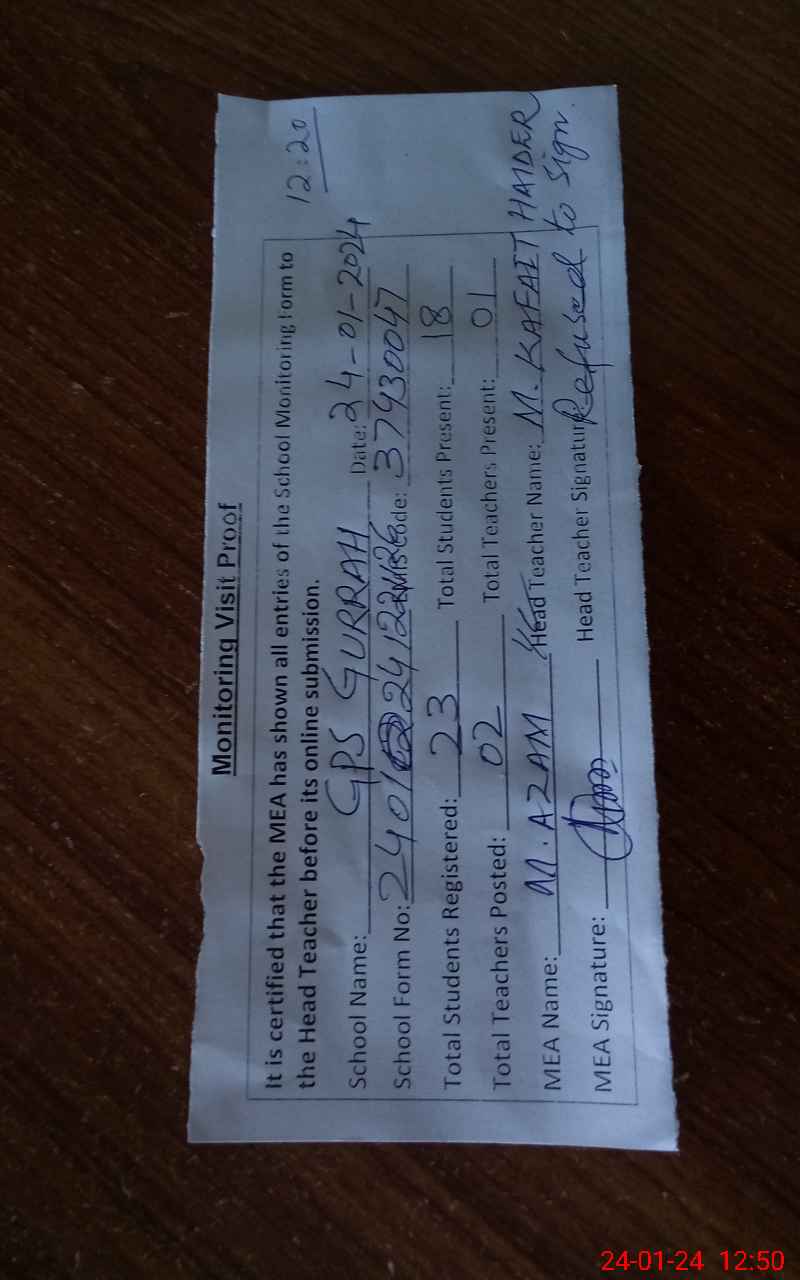 12:20
Monitoring Visit Proof
It is certified that the MEA has shown all entries of the School Monitoring Form to
the Head Teacher before its online submission.
School Name: GPS GURRAH Date: 24-01-2024
School Form No: 2401 24122 Code: 37430047
Total Students Registered: 23 Total Students Present: 18
Total Teachers Posted: 02 Total Teachers Present: 01
MEA Name: M. AZAM Head Teacher Name: M. KAFAIT HAIDER
MEA Signature: Head Teacher Signature: Refused to sign.
24-01-24 12:50